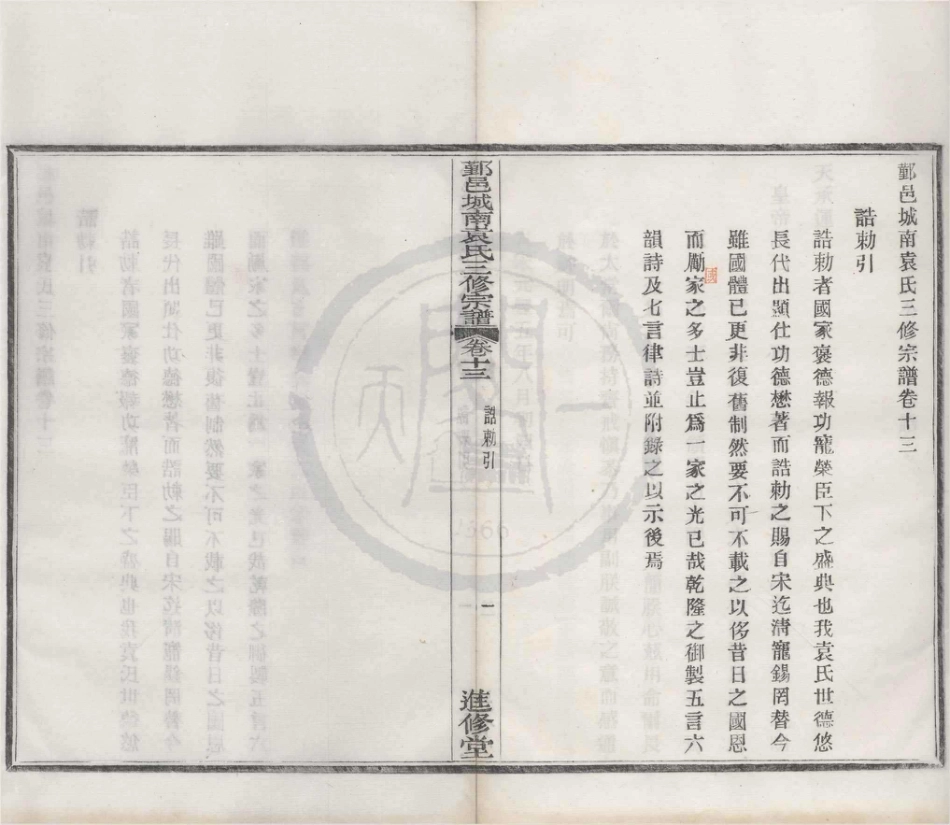 鄞邑城南袁氏三修宗譜卷十三
誥勅引
誥勅者國家褒德報功寵榮臣下之盛典也我袁氏世德悠
長代出顯仕功德懋著而誥勅之賜自宋迄清寵錫罔替今
雖國體已更非復舊制然要不可不載之以侈昔日之國恩
而勵家之多士豈止爲一家之光已哉乾隆之御製五言六
韻詩及七言律詩並附錄之以示後焉
鄞邑城南袁氏三修宗譜 卷十三 誥勅引 一 進修堂